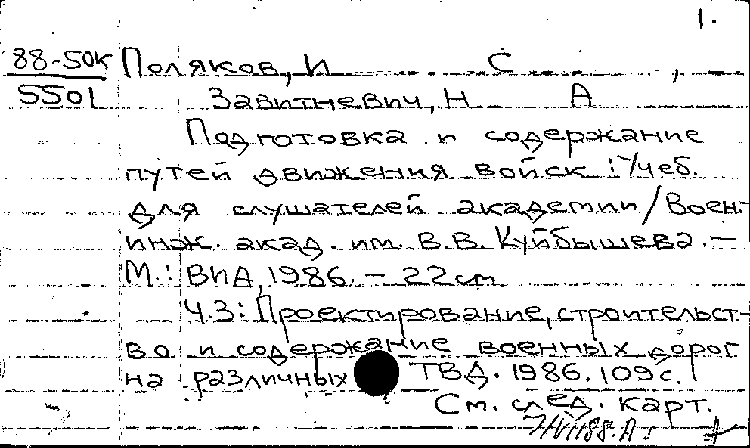 1.
88-50к Поляков, И С ,
5501 Завитневич, Н А
Подготовка и содержание
путей движения войск : Учеб.
для слушателей академии / Воен.-
инж. акад. им. В.В. Куйбышева. –
М. : ВИА, 1986. – 22 см
Ч.3: Проектирование, строительст-
во и содержание военных дорог
на различных ТВД. 1986. 109 с.
См. след. карт.